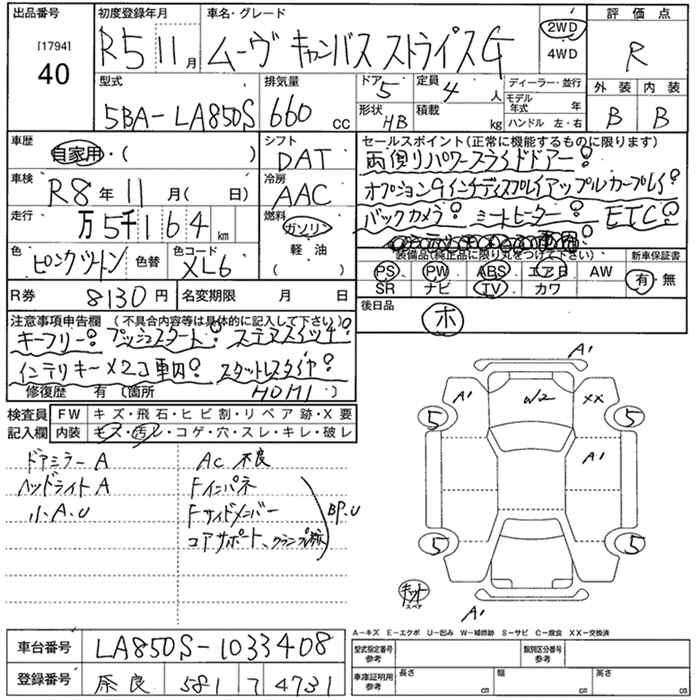 出品番号 初度登録年月 車名・グレード 評価点
[1794] 40
R5 11月
ムーヴ キャンバス ストライプスG
2WD
4WD
R
型式 排気量 ドア 定員 ディーラー・並行 外装 内装
5BA-LA850S 660cc 5 4人
形状 HB 積載 kg モデル年式 年 ハンドル 左・右 B B
車歴 シフト セールスポイント(正常に機能するものに限ります)
自家用・( ) DAT 両側リパワースライドドアー!
車検 冷房
R8年11月( 日) AAC オプション9インチディスプレイアップルカープレイ!
走行 燃料
万5千164km ガソリン・軽油 ( ) バックカメラ! シートヒーター! ETC!
色 色替 色コード
ピンクツートン XL6
装備品(純正品に限り丸をつけて下さい) 新車保証書
PS PW ABS エアB AW 有・無
SR ナビ TV カワ
R券 8130円 名変期限 月 日 後日品 ホ
注意事項申告欄 (不具合内容等は具体的に記入して下さい)
キーフリー! プッシュスタート! ステアスイッチ!
インテリキー×2コ車内! スタットレスタイヤ!
修復歴 有(箇所 )
検査員記入欄 FW キズ・飛石・ヒビ割・リペア跡・X要
内装 キズ・汚レ・コゲ・穴・スレ・キレ・破レ
ドアミラーA AC不良
ヘッドライトA Fインパネ
小A.U Fサイドメンバー BP.U
コアサポート、クランプ跡
A1
A1 W2 XX
5 5
A1
5 5
キット スペア
A1
A-キズ E-エクボ U-凹み W-補修跡 S-サビ C-腐食 XX-交換済
車台番号 LA850S-1033408
登録番号 奈良 581 ワ 4731
型式指定番号 参考 類別区分番号 参考
車庫証明用 参考 長さ cm 幅 cm 高さ cm